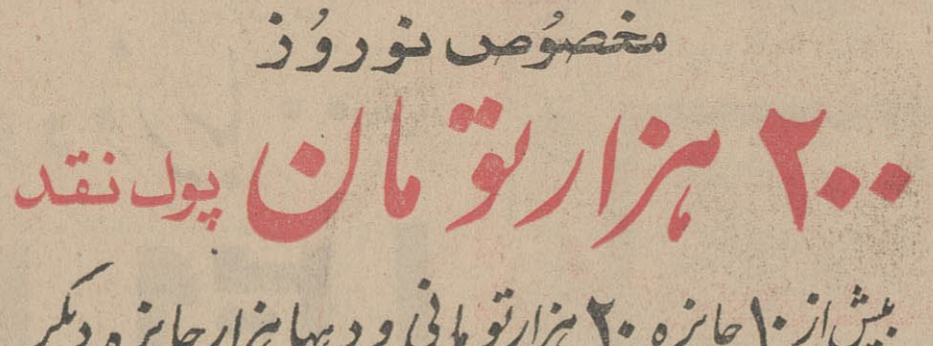 مخصُوص نوروُز
۲۰۰ هزار تومان پول نقد
بیش از ۱۰ جایزه ۲۰ هزار تومانی و دهها هزار جایزه دیگر